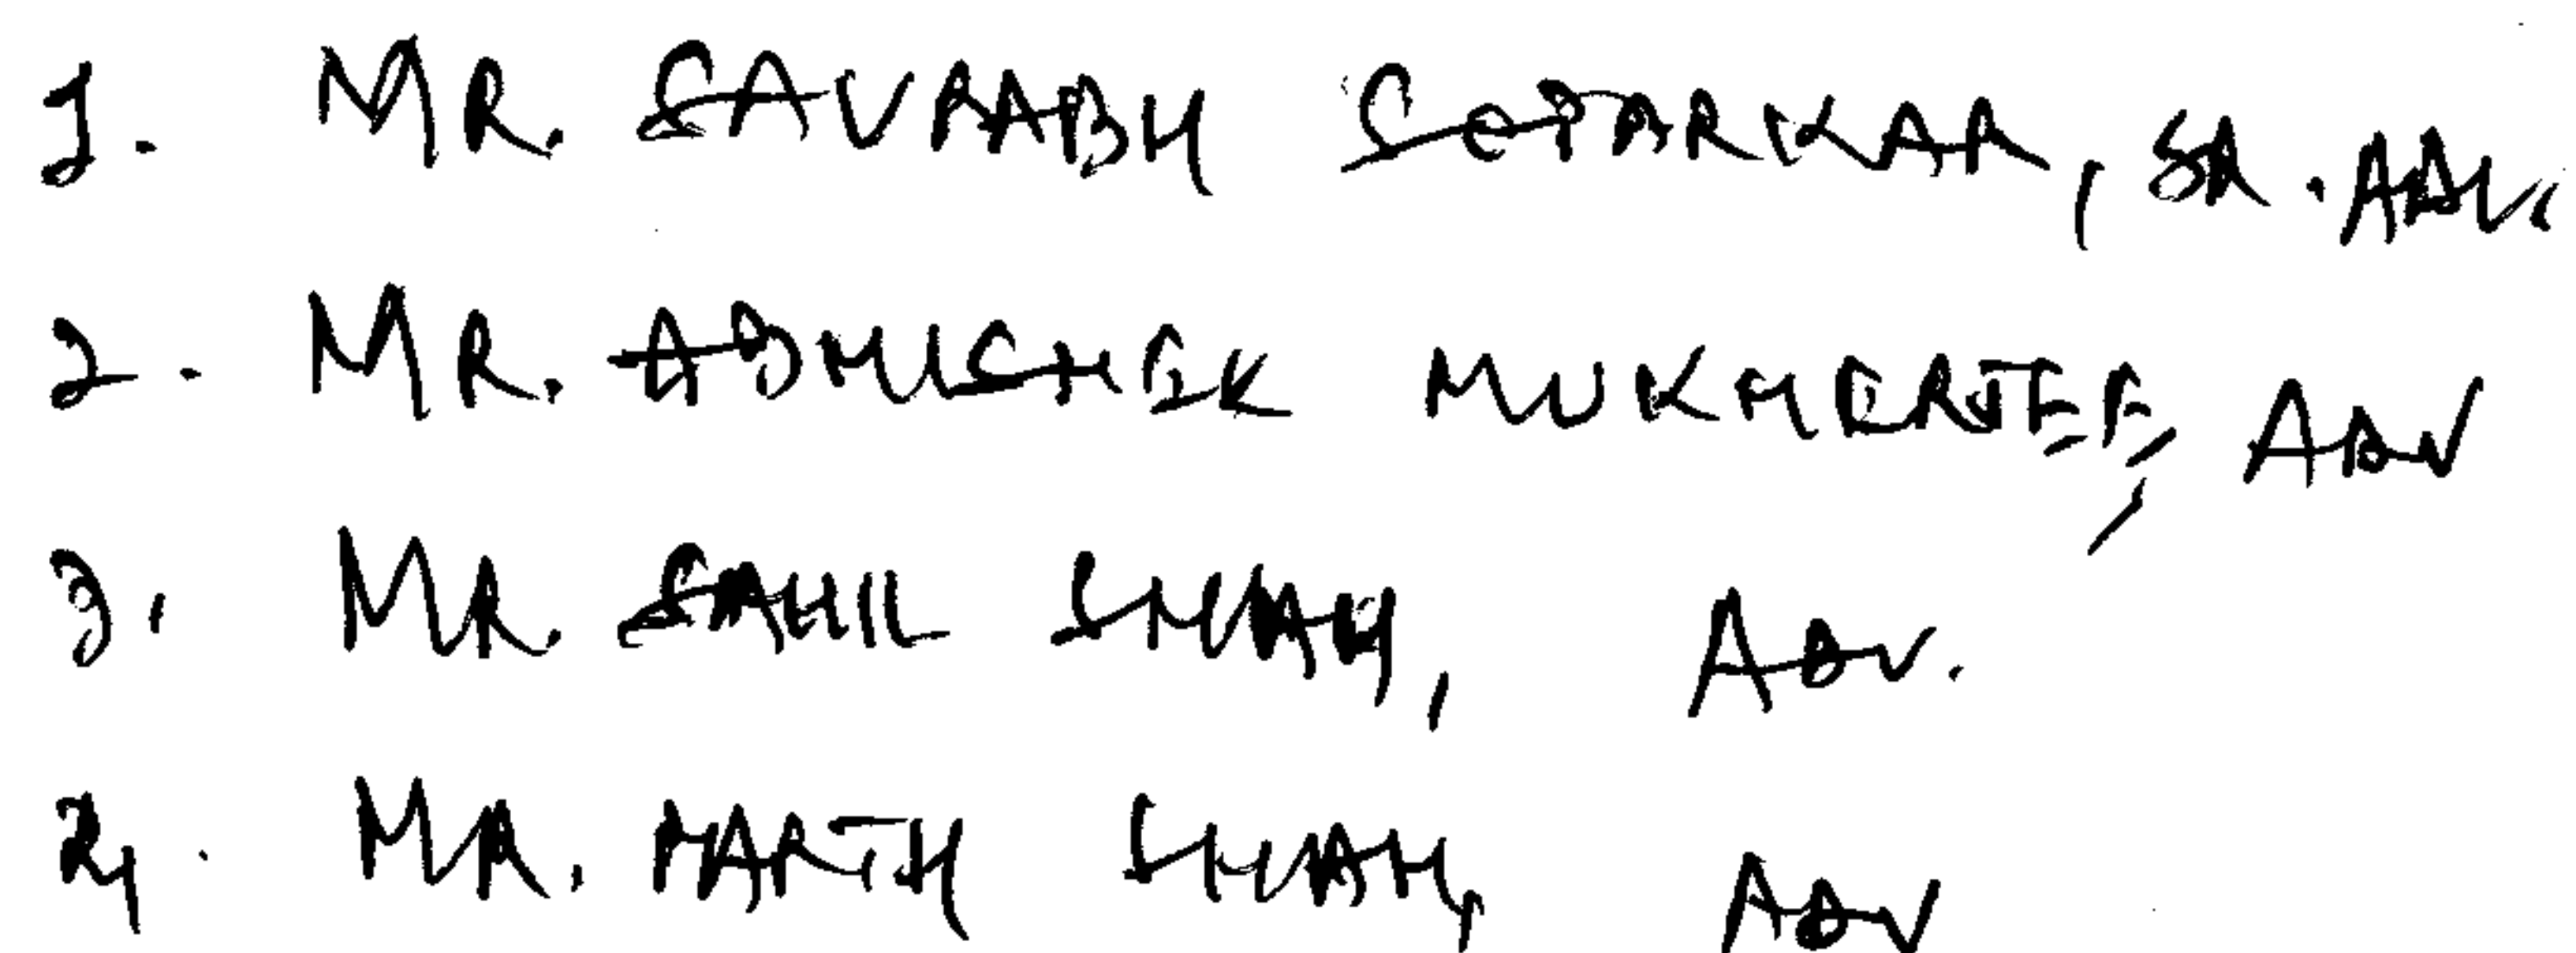 1. MR. SAURABH SOPARKAR, SR. ADV.
2. MR. ABHISHEK MUKHERJEE, ADV
3. MR. SAHIL SHAH, ADV.
4. MR. PARTH SHAH, ADV